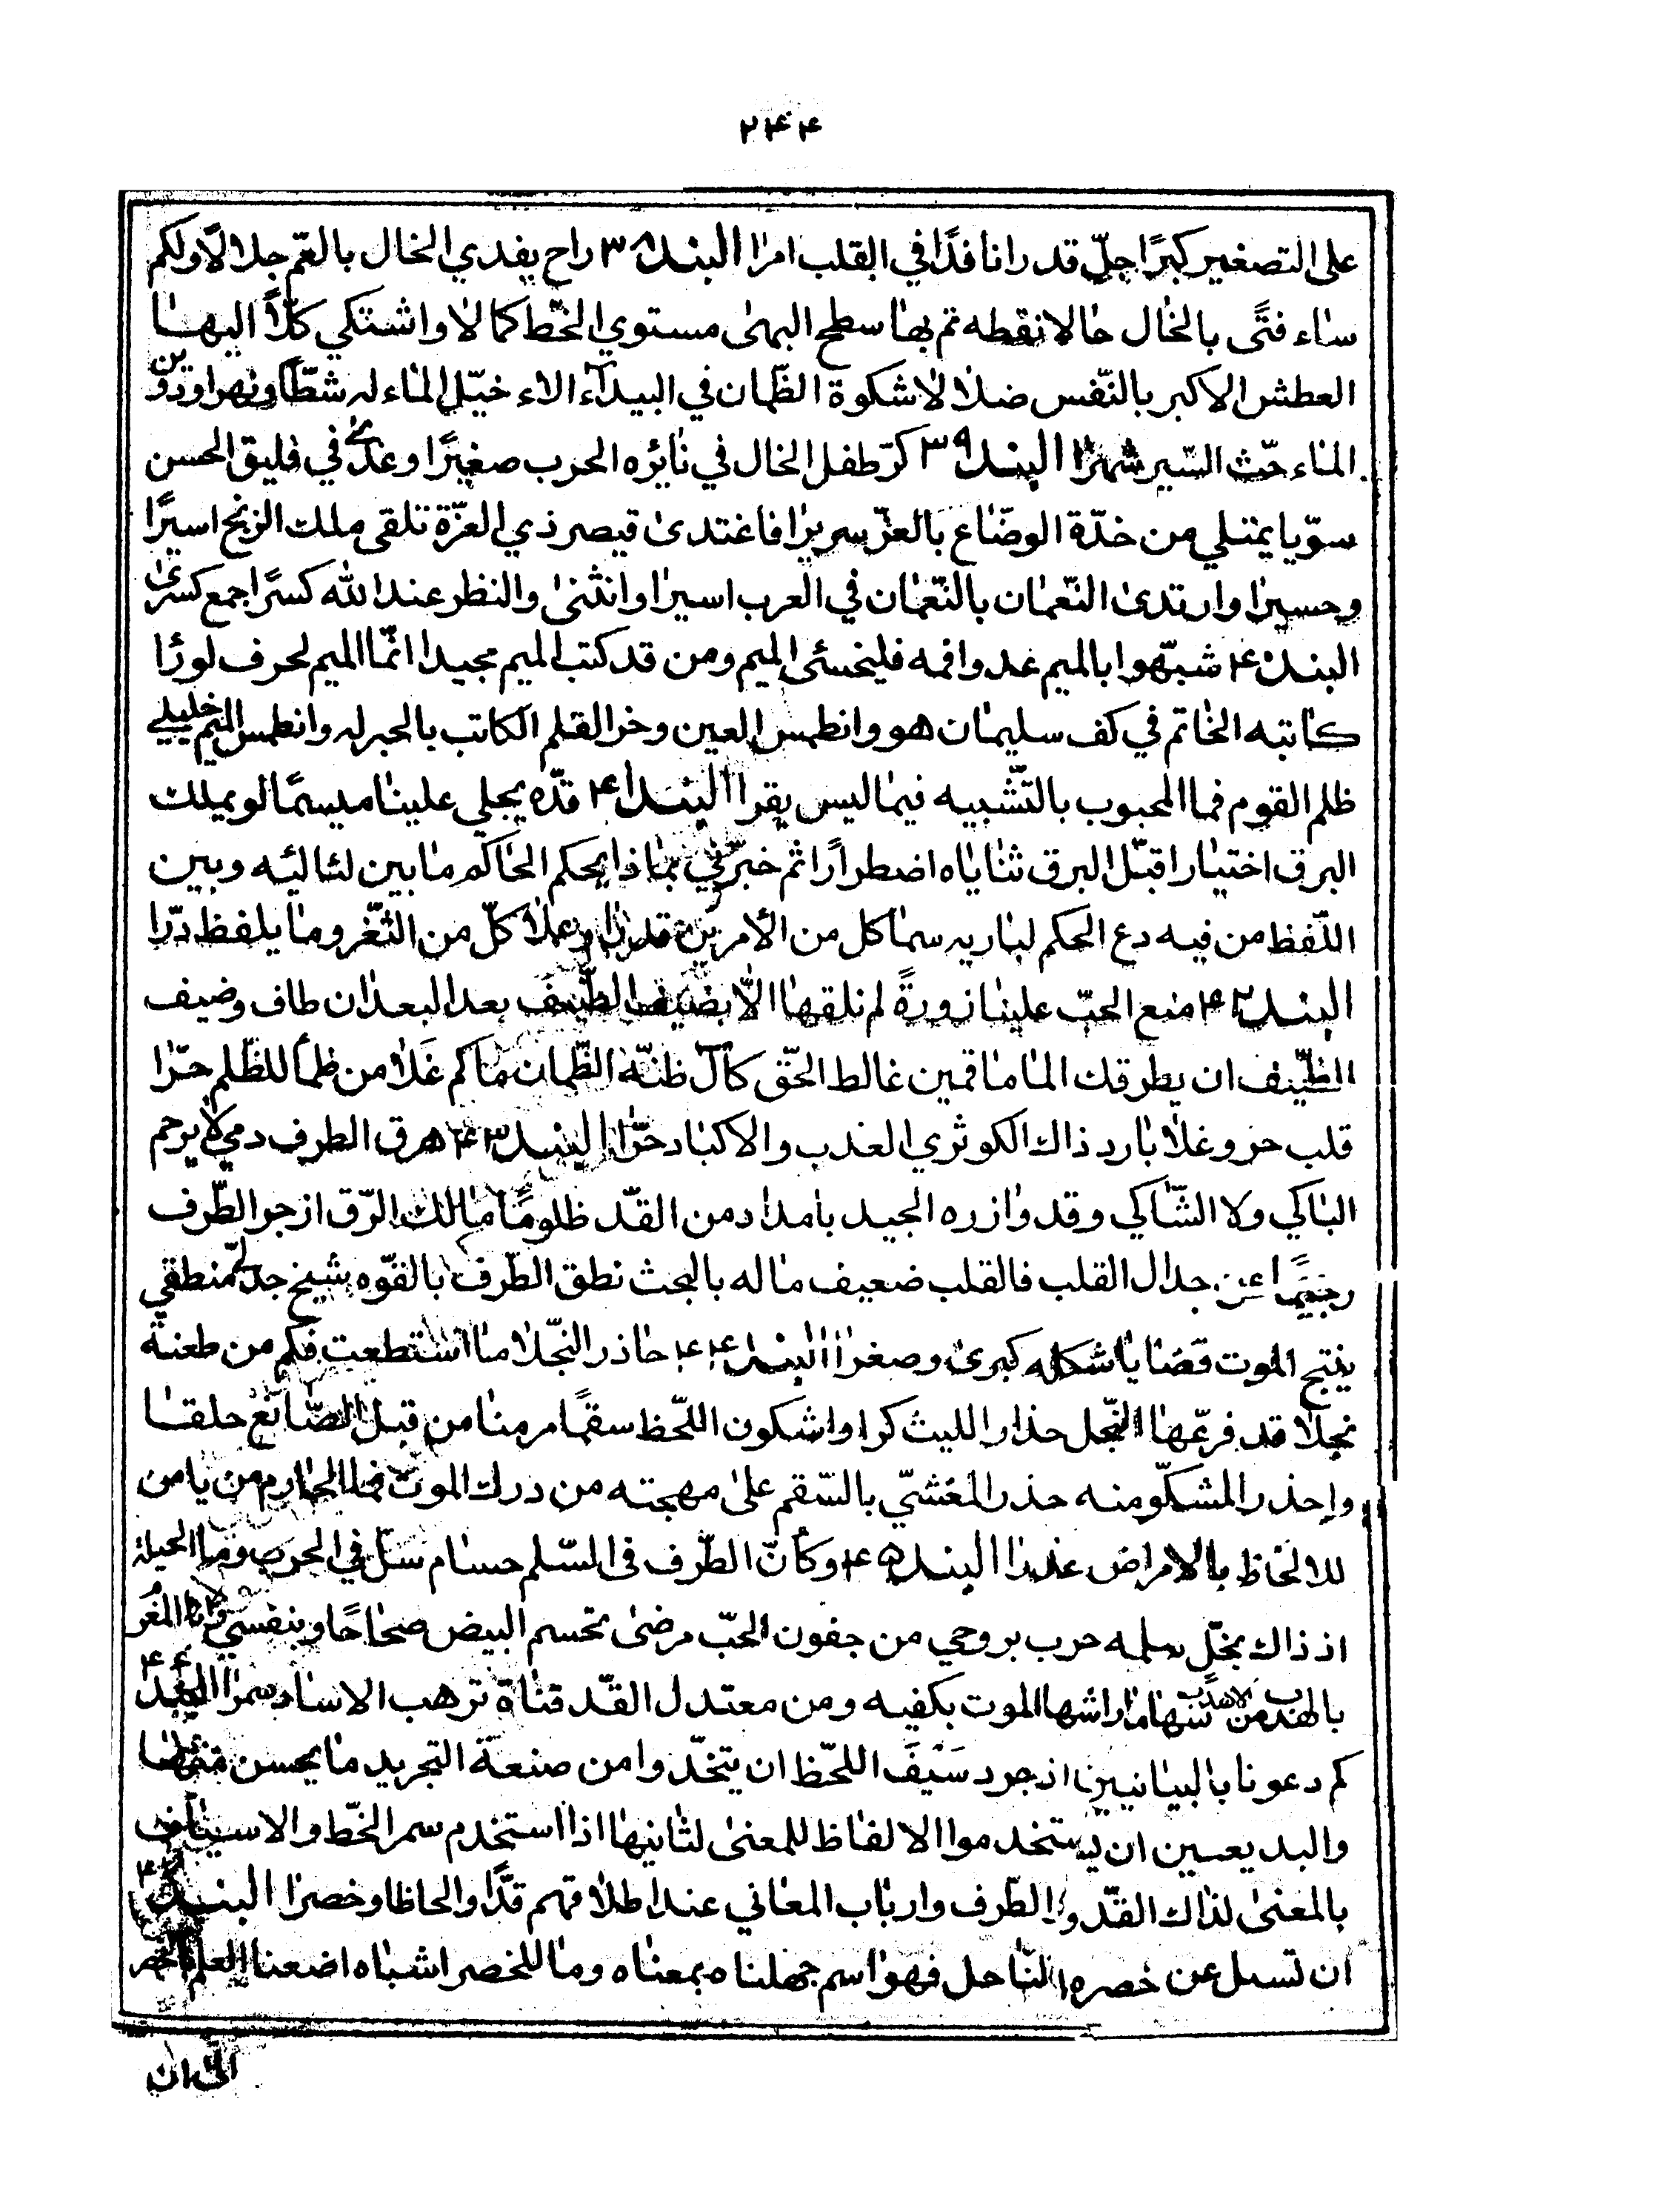 ٢۴۴
على التصغير كبرًا جلّ قدرا نافذًا في القلب امرا البند ٣٨ راح يفدي الخال بالعّم جلالًا ولكم
ساء فتًى بالخال حالا نقطه تم بها سطح البهى مستوي الخّط كمالا واشتكي كلّاً اليها
العطش الاكبر بالنّفس ضلالا شكوة الظّمان في البيدآء الاء خيّل الماء له شطّاً ونهرا ودوين
الماء حّث السّير شهرا البند ٣٩ كرّ طفل الخال في نائره الحرب صغيرًا وعدّى في فليق الحسن
سوّيا يمتلي من خدّة الوضّاع بالعزّ سريرا فاغتدى قيصر ذي العزّة تلقى ملك الزنج اسيرًا
وحسيرا وارتدى النّعمان بالنّعمان في العرب اسيرا وانثنى والنظر عند الله كسرًا جمع كسرى
البند ۴٠ شبّهوا بالميم عدوا فمه فليخسئ الميم ومن قد كتب الميم مجيدا انّما الميم لحرف لورئا
كاتبه الخاتم في كف سليمان هو وانطمس العين وخر القلم الكاتب بالحبر له وانطمس الميم خليلي
ظلم القوم فما المحبوب بالتّشبيه فيما ليس يقرا البند ۴١ قدّه يجلي علينا ميسمًا لو يملك
البرق اختيارا قبّل البرق ثناياه اضطرارًا ثم خبرّني بماذا يحكم الحاكم ما بين لئاليه وبين
اللّفظ من فيه دع الحكم لباريه سما كل من الأمرين قدرا وعلا كلّ من الثّغر وما يلفظ درّا
البند ۴٢ منع الحبّ علينا زورةً لم نلقها الّا بضيف الطّيف بعد البعد ان طاف وضيف
الطّيف ان يطرقك الماما قمين غالط الحّق كآل ظنّه الظّمان ما كم غَلا من ظمأ للظّلم حرّا
قلب حر وغلا بارد ذاك الكوثري العذب والاكباد حرّا البند ۴٣ هرق الطرف دمي لا يرحم
الباكي ولا الشّاكي وقد وازره الجيد بامداد من القّد ظلومًا مالك الرّق ازجر الطّرف
رخيمًا عن جدال القلب فالقلب ضعيف ما له بالبحث نطق الطّرف بالقوّه شيخ جدلّي منطقي
ينتج الموت قضايا شكله كبرى وصغرا البند ۴۴ حاذر النّجلا ما استطعت فكم من طعنة
نجلا قد فرعّها النّجل حذار الليث كرا واشكون اللّحظ سقمًا مرمنا من قبل الصّانع حلقا
واحذر المشكوّ منه حذر المغشيّ بالسّقم على مهجته من درك الموت فما الحازم من يامن
للالحاظ بالامراض غدرا البند ۴۵ وكأنّ الطّرف فى السّلم حسام سلّ في الحرب وما الحيلة
اذ ذاك بخلّ سلمه حرب بروحي من جفون الحبّ مرضى تحسم البيض صحاحًا وبنفسي المغر
بالهدب من سهاما راشها الموت بكفيه ومن معتدل القّد قناة ترهب الاساد سمرا البند ۴۶
كم دعونا بالبيانيين اذ جرد سَيْفَ اللحّظ ان يتخّدوا من صنعة التجريد ما يحسن
والبديعيين ان يستخدموا الالفاظ للمعنى لثانيها اذا استخدم سمر الخّط والاسياف
بالمعنى لذاك القّد والطّرف وارباب المعاني عند اطلاقهم قدًّا والحاظا وخصرا البند
ان تسل عن خصره النّاحل فهو اسم جهلناه بمعناه وما للخصر اشباه اضعنا العلم
الى ان